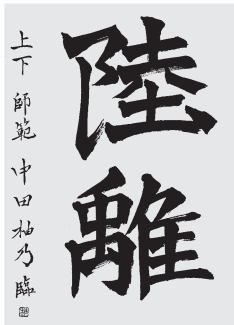 陸離
上下 師範 中田柚乃 臨